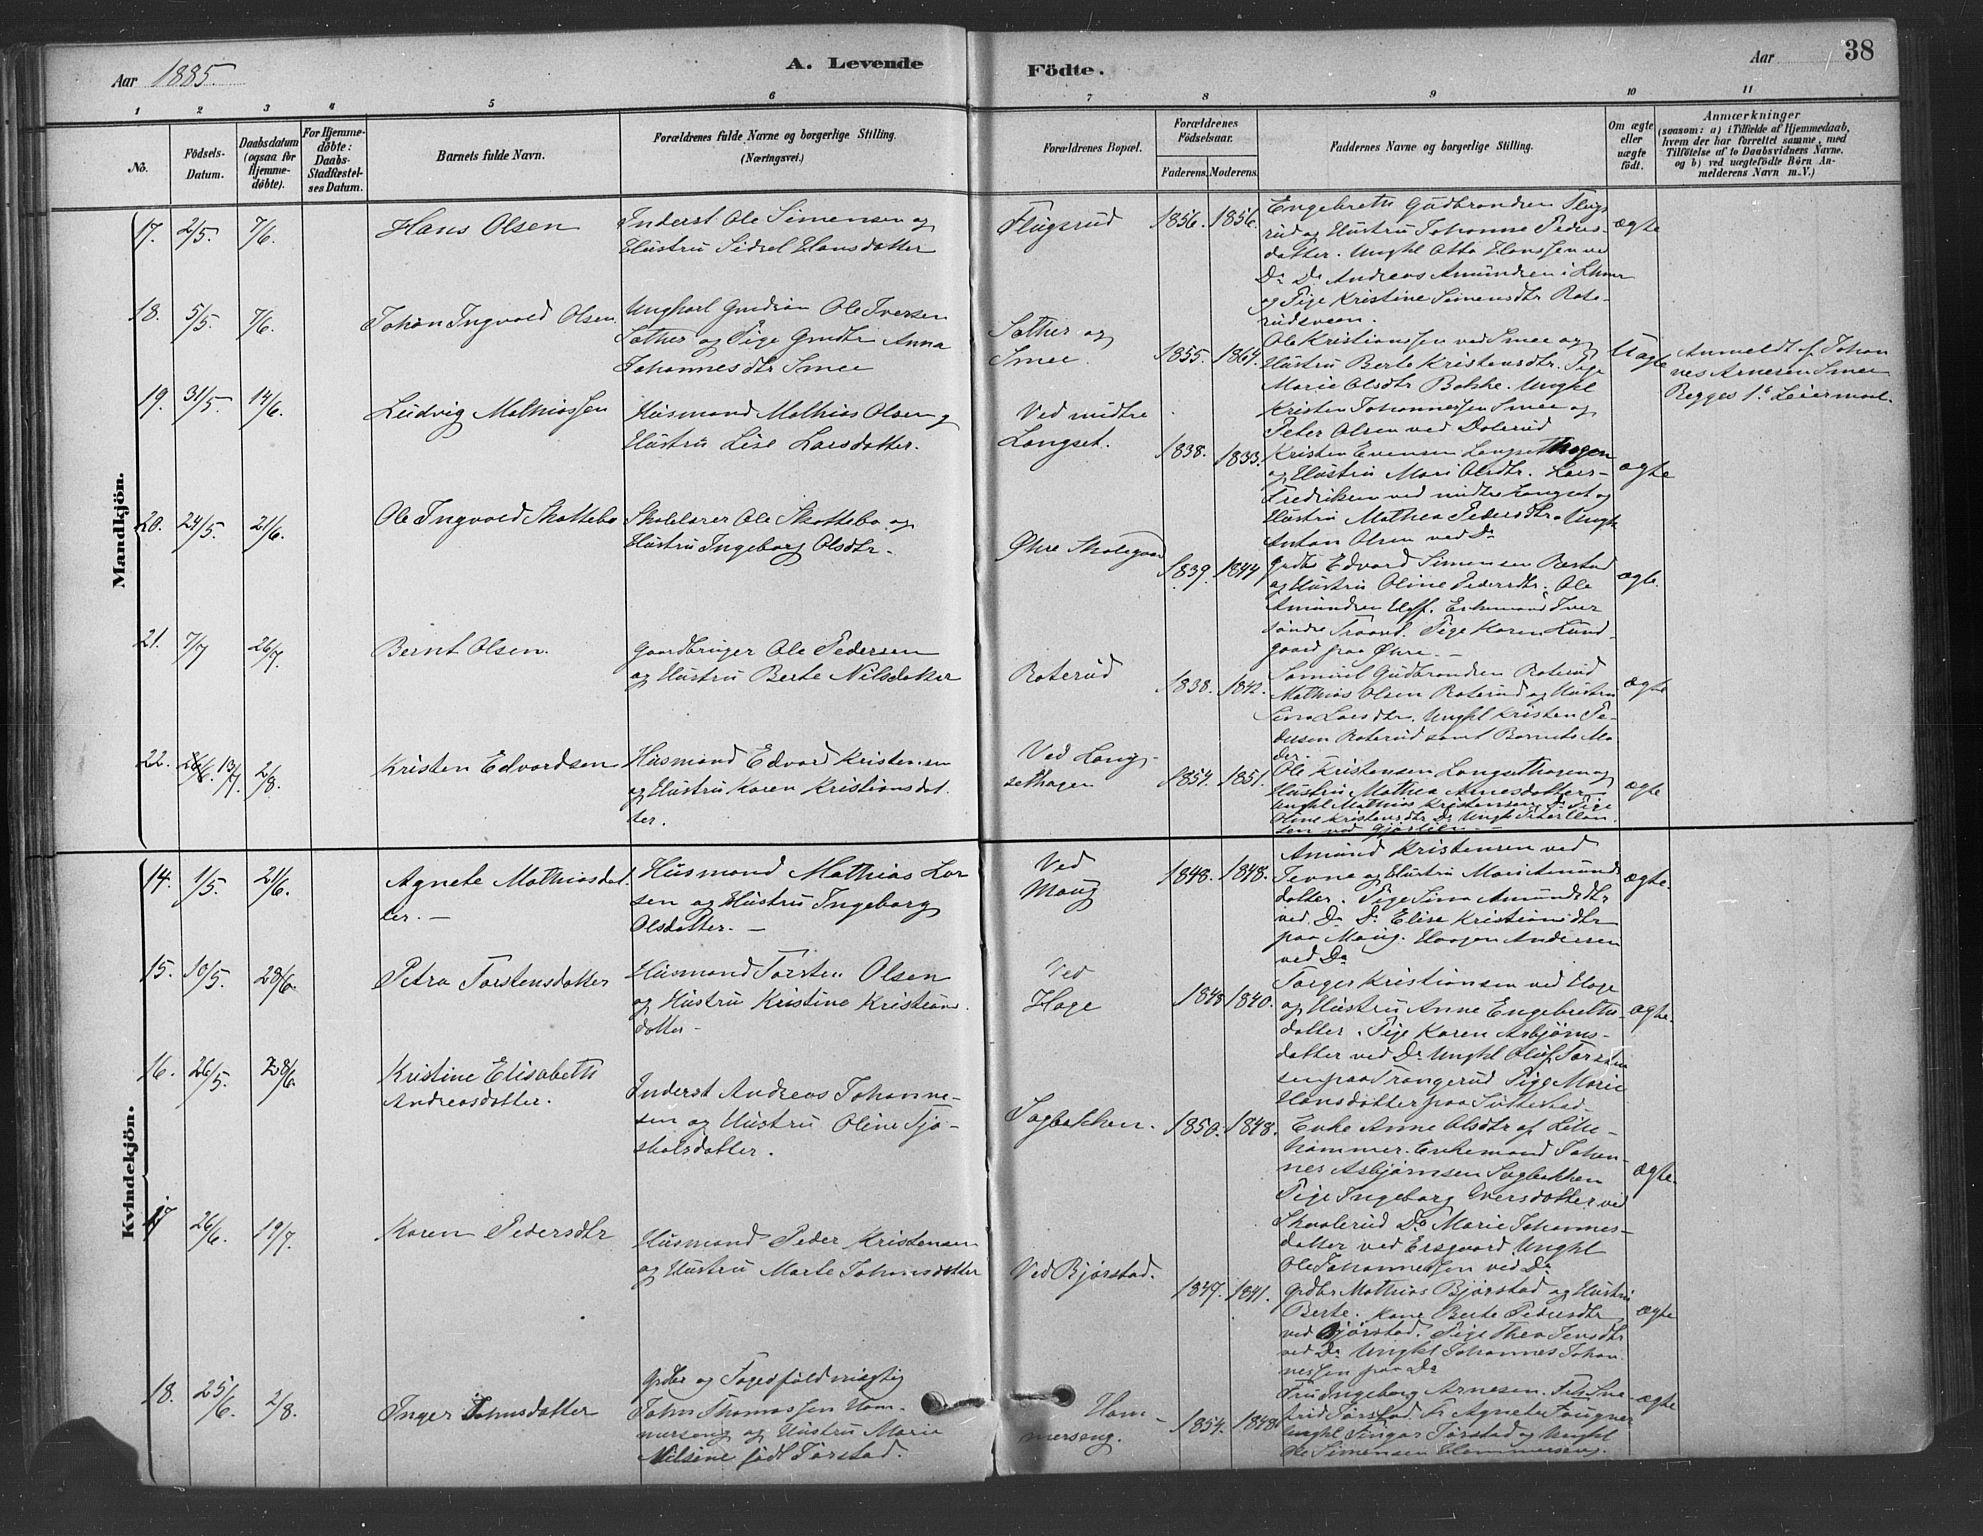 Aar 1885.
A. Levende
Födte.
Aar
38
1 2 3 4 5 6 7 8 9 10 11
No.
Födsels-
Datum.
Daabsdatum
(ogsaa for
Hjemme-
döbte).
For Hjemme-
döbte:
Daabs-
Stadfæstel-
ses Datum.
Barnets fulde Navn.
Forældrenes fulde Navne og borgerlige Stilling.
(Næringsvei.)
Forældrenes Bopæl.
Forældrenes
Födselsaar.
Faderens. Moderens.
Faddernes Navne og borgerlige Stilling.
Om ægte
eller
uægte
født.
Anmærkninger
(saasom: a) i Tilfælde af Hjemmedaab,
hvem der har forrettet samme, med
Tilföielse af to Daabsvidners Navne.
og b) ved uægtefödte Börn An-
melderens Navn m.V.)
Mandkjön.
17. 2/5. 7/6.
Hans Olsen
Inderst Ole Simensen og
Hustru Sidsel Hansdatter
Flugsrud
1856. 1856.
Engebreth Gudbrandsen Flugs
rud og Hustru Johanne Peders-
datter. Ungkl Otto Hanssen ved
Do Do Andreas Amundsen i
og Pige Kristine Simensdtr Rote-
rudsveen.
ægte
18. 5/5. 7/6.
Johan Ingvald Olsen
Ungkarl Ole Iversen
Sæther og Pige Anna
Johannesdtr Smee
Sæther og
Smee.
1855. 1864.
Ole Kristianssen ved Smee og
Hustru Berte Kristensdtr. Pige
Marie Olsdtr Ungkl
Kristen Johannessen Smee og
Peter Olsen ved
Uægte
Anmeldt af Johan
nes Arnesen Smee
Begges 1ste Leiermaal.
19. 31/5. 14/6.
Ludvig Mathiassen
Husmand Mathias Olsen og
Hustru Lise Larsdatter.
Ved midtre
Langset.
1838. 1833.
Kristen Evensen Langsethagen
og Hustru Mari Olsdtr. Lars
Fredriksen ved midtre Langset og
Hustru Mathea Pedersdtr. Ungk
Anton Olsen ved Do
ægte
20. 24/5. 21/6.
Ole Ingvald Skattebo
Skolelærer Ole Skattebo og
Hustru Ingeborg Olsdtr.
Øvre Skolegaard
1839. 1844
Edvard Simensen
og Hustru Oline Pedersdtr. Ole
Amundsen Enkemand Iver
søndre Pige Karen Lund-
gaard paa Øvre. -
ægte.
21. 7/7 26/7.
Bernt Olsen.
Gaardbruger Ole Pedersen
og Hustru Berte Nilsdatter
Roterud
1838. 1842.
Samuel Gudbrandsen Roterud
Mathias Olsen Roterud og Hustru
Larsdtr. Ungkl Kristen Pe-
dersen Roterud samt Barnets Mo-
der. -
ægte
22. 13/7 2/8.
Kristen Edvardsen
Husmand Edvard Kristensen
og Hustru Karen Kristiansdat
ter.
Ved Lang-
sethagen
1854. 1851.
Ole Kristensen Langsethagen og
Hustru Mathea Arnesdatter
Ungkl Mathias Kristensen Do Pige
Oline Kristensdtr Do Ungk Peter
sen ved
ægte
Kvindekjön.
14. 1/5. 21/6.
Agnete Mathiasdat
ter. -
Husmand Mathias Lar
sen og Hustru Ingeborg
Olsdatter. -
Ved
Maug
1848. 1848.
Amund Kristensen ved
og Hustru Mari Amunds
datter. Pige Sina Amundsdtr
ved Do Do Elise Kristiansdtr
paa Maug. Haagen Andersen
ved Do
ægte.
15. 10/5. 28/6.
Petra Torstensdatter
Husmand Torsten Olsen
og Hustru Kristine Kristians
datter -
Ved
Hage
1848 1840.
Torger Kristiansen ved Hage
og Hustru Anne Engebreths-
datter. Pige Karen Asbjørns-
datter ved Do Ungkl Oluf Torsten
sen paa Pige Marie
Hansdatter paa Suttestad
ægte.
16. 26/5. 28/6.
Kristine Elisabeth
Andreasdatter.
Inderst Andreas Johanne-
sen og Hustru Oline
datter.
Sagbakken.
1850. 1848.
Enke Anne Olsdtr af Lille-
hammer. Enkemand Johan-
nes Asbjørnsen Sagbakken
Pige Ingeborg Iversdatter ved
Skvalerud Do Marie Johannes-
datter ved Ersgaard Ungkl
Ole Johannessen ved Do
ægte.
17 26/6. 19/7.
Karen Pedersdtr
Husmand Peder Kristensen
og Hustru Marte Johansdatter
Ved Bjørstad.
1847. 1841.
Grdbr Mathias Bjørstad og Hustru
Berte. Kone Berte Pedersdtr
ved Bjørstad. Pige Thea Jensdtr
ved Do Ungkl Johannes Johan
nessen paa Do
ægte
18. 25/6. 2/8.
Inger Johnsdatter
Grdbr og Fogedfuldmægtig
John Thomassen Ham-
merseng og Hustru Marie
Nilsine født Forstad.
Ham-
merseng.
1854. 1848
Fru Ingeborg Arnesen.
Fr Agnete Fougner
Ungkl og Ungkl
Ole Simensen Hammerseng.
ægte